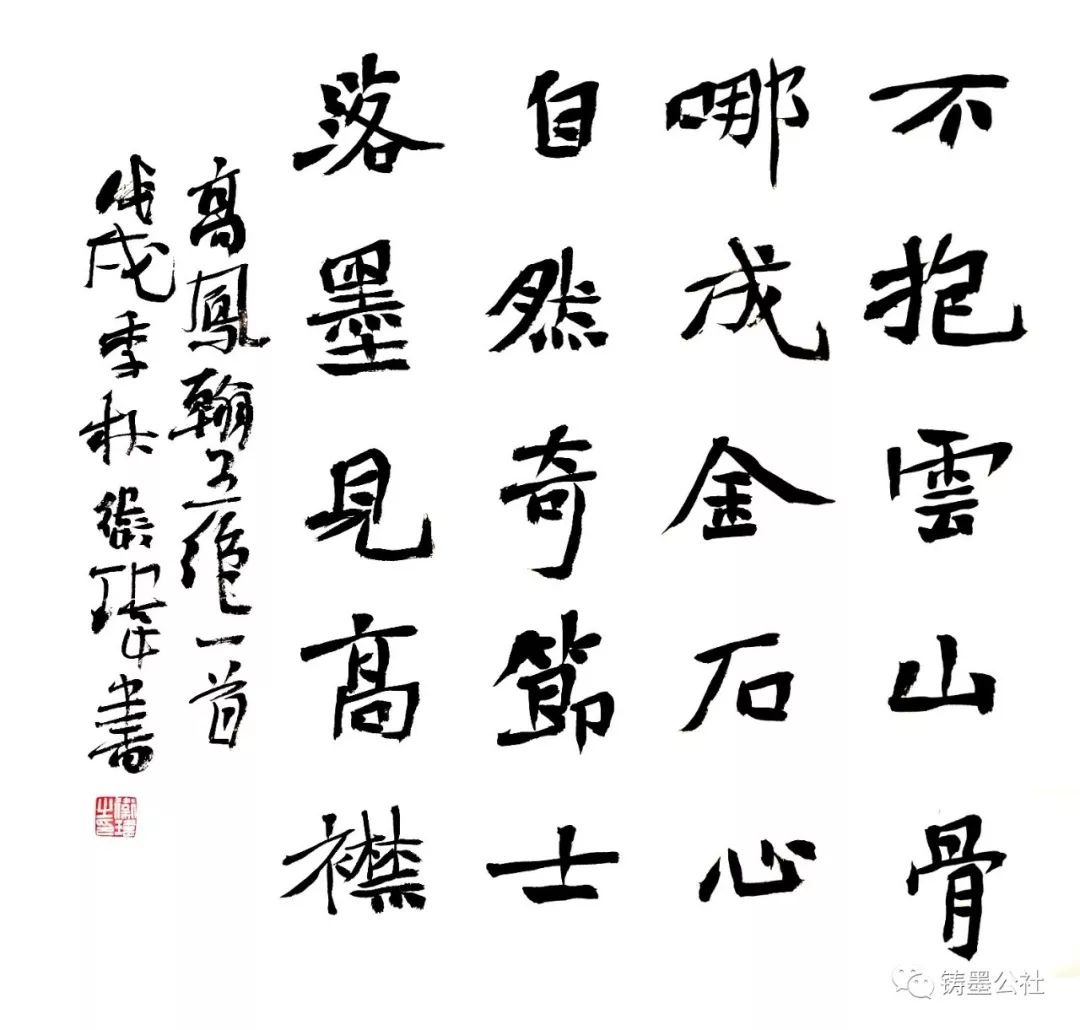 不抱雲山骨
哪成金石心
自然奇節士
落墨見高襟
高鳳翰五绝一首
戊戌季秋 書
铸墨公社